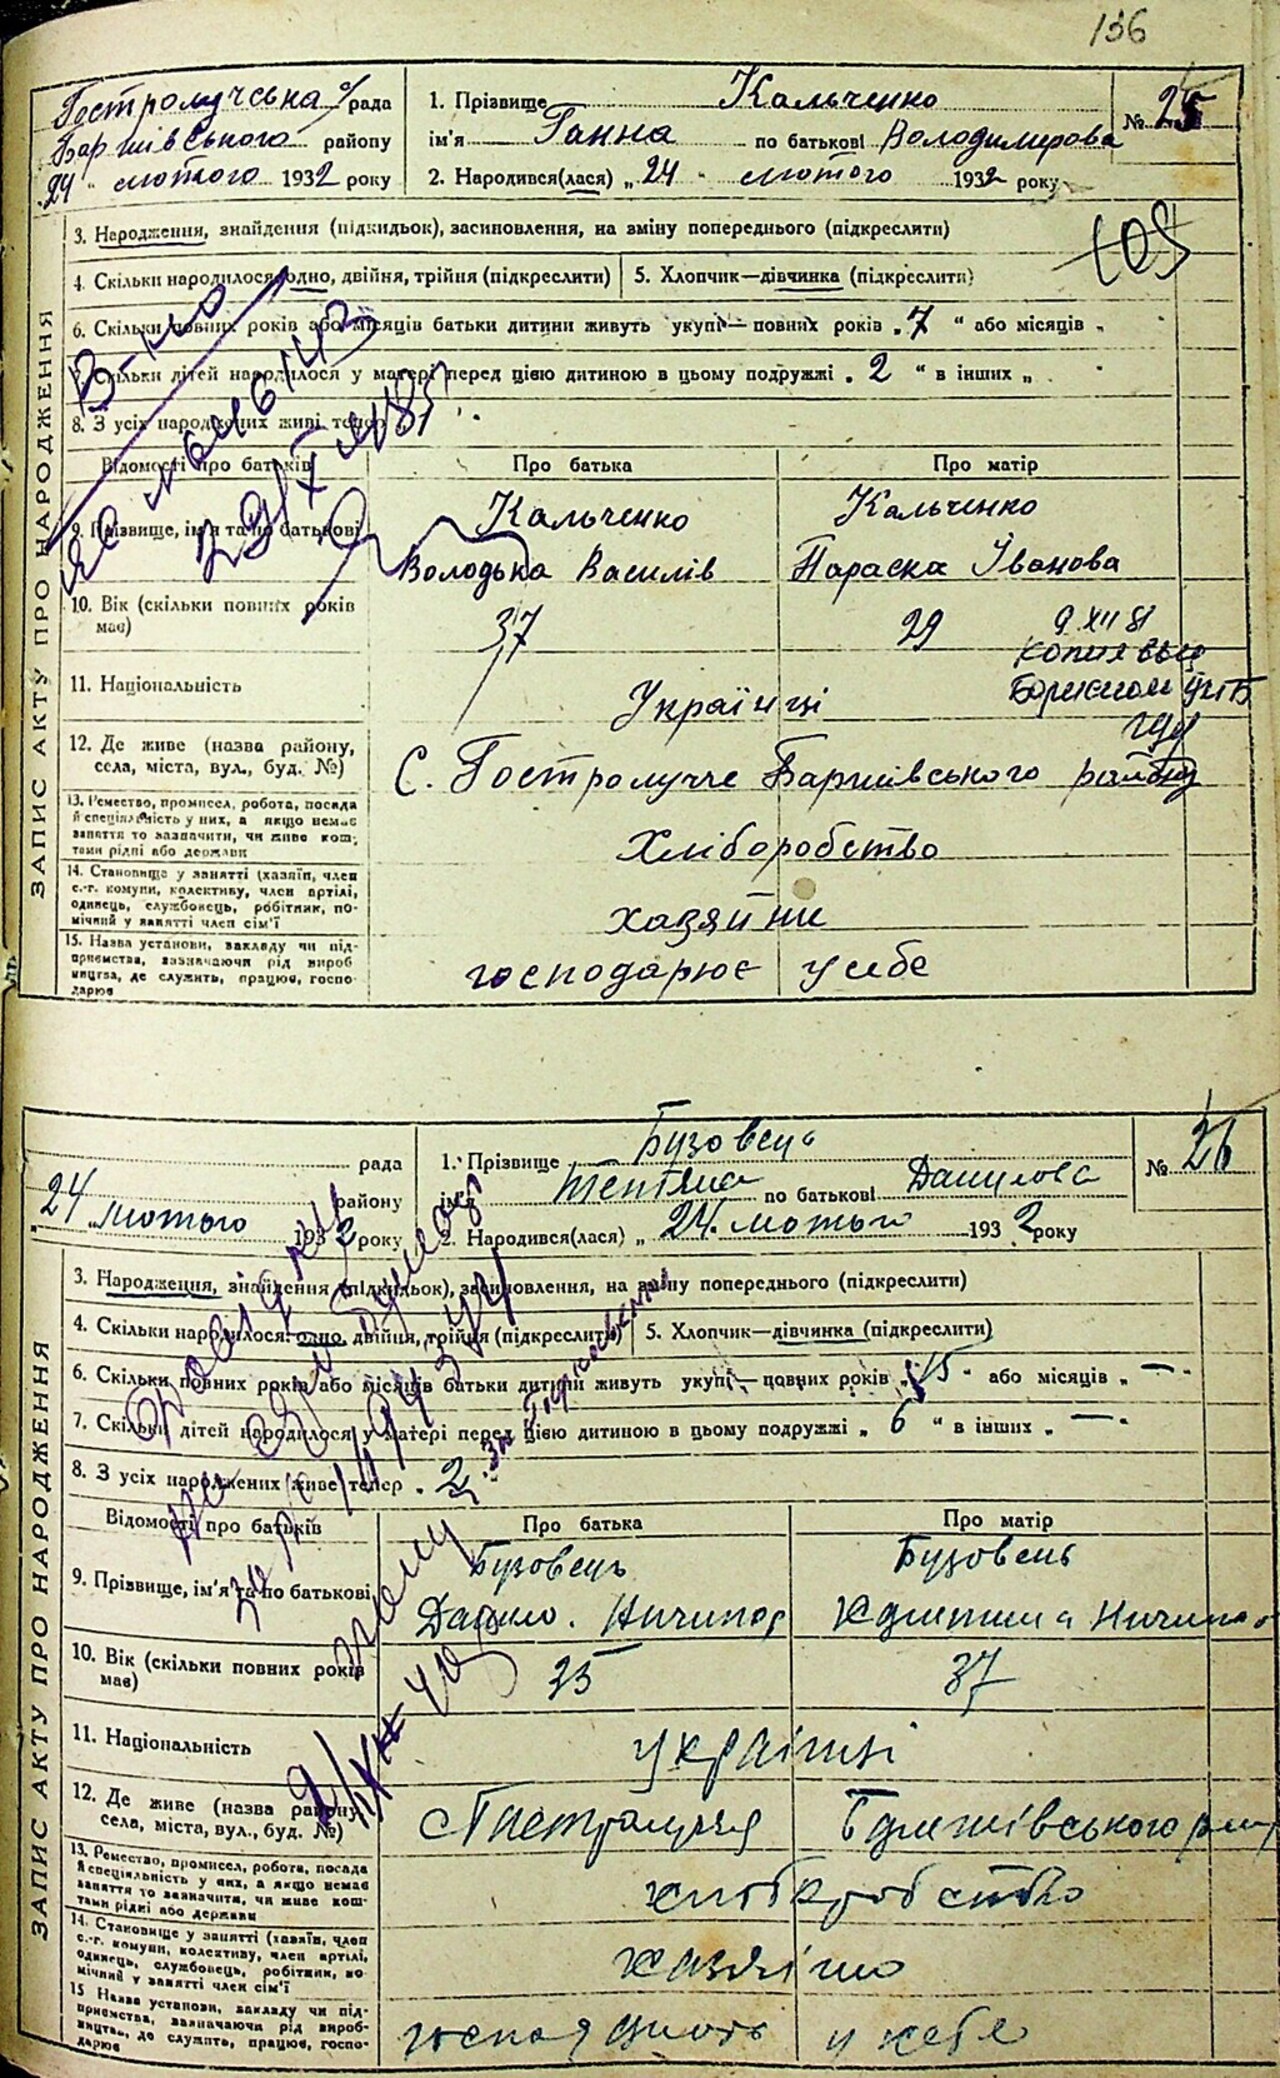 136
Гостролучська с/рада
Баришівського району
24 " лютого 1932 року
1. Прізвище Кальченко
ім'я Ганна по батькові Володимирова
2. Народився(лася) „ 24 " лютого 1932 року
№ 25
ЗАПИС АКТУ ПРО НАРОДЖЕННЯ
3. Народження, знайдення (підкидьок), засиновлення, на зміну попереднього (підкреслити)
105
4. Скільки народилося: одно, двійня, трійня (підкреслити)
5. Хлопчик—дівчинка (підкреслити)
6. Скільки повних років або місяців батьки дитини живуть укупі — повних років „ 7 " або місяців „
7. Скільки дітей народилося у матері перед цією дитиною в цьому подружжі „ 2 " в інших „
8. З усіх народжених живі тепер
Відомості про батьків
Про батька
Про матір
9. Прізвище, ім'я та по батькові
Кальченко
Володька Василів
Кальченко
Параска Іванова
10. Вік (скільки повних років має)
37
29
9 XII 81
копия выд
11. Національність
Українці
12. Де живе (назва району,
села, міста, вул., буд. №)
С. Гостролучче Баришівського району
13. Ремество, промисел, робота, посада
й спеціяльність у них, а якщо немає
заняття то зазначити, чи живе кош-
тами рідні або держави
Хліборобство
14. Становище у занятті (хазяїн, член
с.-г. комуни, колективу, член артілі,
одинець, службовець, робітник, по-
мічний у занятті член сім'ї
хазяйни
15. Назва установи, закладу чи під-
приємства, зазначаючи рід вироб
ництва, де служить, працює, госпо-
дарює
господарює у себе
рада
району
24 " лютого 1932 року
1. Прізвище Бузовець
ім'я Тетяна по батькові Данилова
2. Народився(лася) „ 24. лютого 1932 року
№ 26
ЗАПИС АКТУ ПРО НАРОДЖЕННЯ
3. Народження, знайдення (підкидьок), засиновлення, на зміну попереднього (підкреслити)
4. Скільки народилося: одно, двійня, трійня (підкреслити)
5. Хлопчик—дівчинка (підкреслити)
6. Скільки повних років або місяців батьки дитини живуть укупі — повних років „ 15 " або місяців „ — "
7. Скільки дітей народилося у матері перед цією дитиною в цьому подружжі „ 6 " в інших „ — "
8. З усіх народжених живе тепер „ 2
Відомості про батьків
Про батька
Про матір
9. Прізвище, ім'я та по батькові
Бузовець
Данило. Ничипор
Бузовець
Ничипор
10. Вік (скільки повних років
має)
35
37
11. Національність
українці
12. Де живе (назва району,
села, міста, вул., буд. №)
Баришівського
13. Ремество, промисел, робота, посада
й спеціяльність у них, а якщо немає
заняття то зазначити, чи живе кош-
тами рідні або держави
хліборобство
14. Становище у занятті (хазяїн, член
с.-г. комуни, колективу, член артілі,
одинець, службовець, робітник, по
мічний у занятті член сім'ї
15 Назва установи, закладу чи під-
приємства, зазначаючи рід вироб-
ництва, де служить, працює, госпо-
дарює
у себе